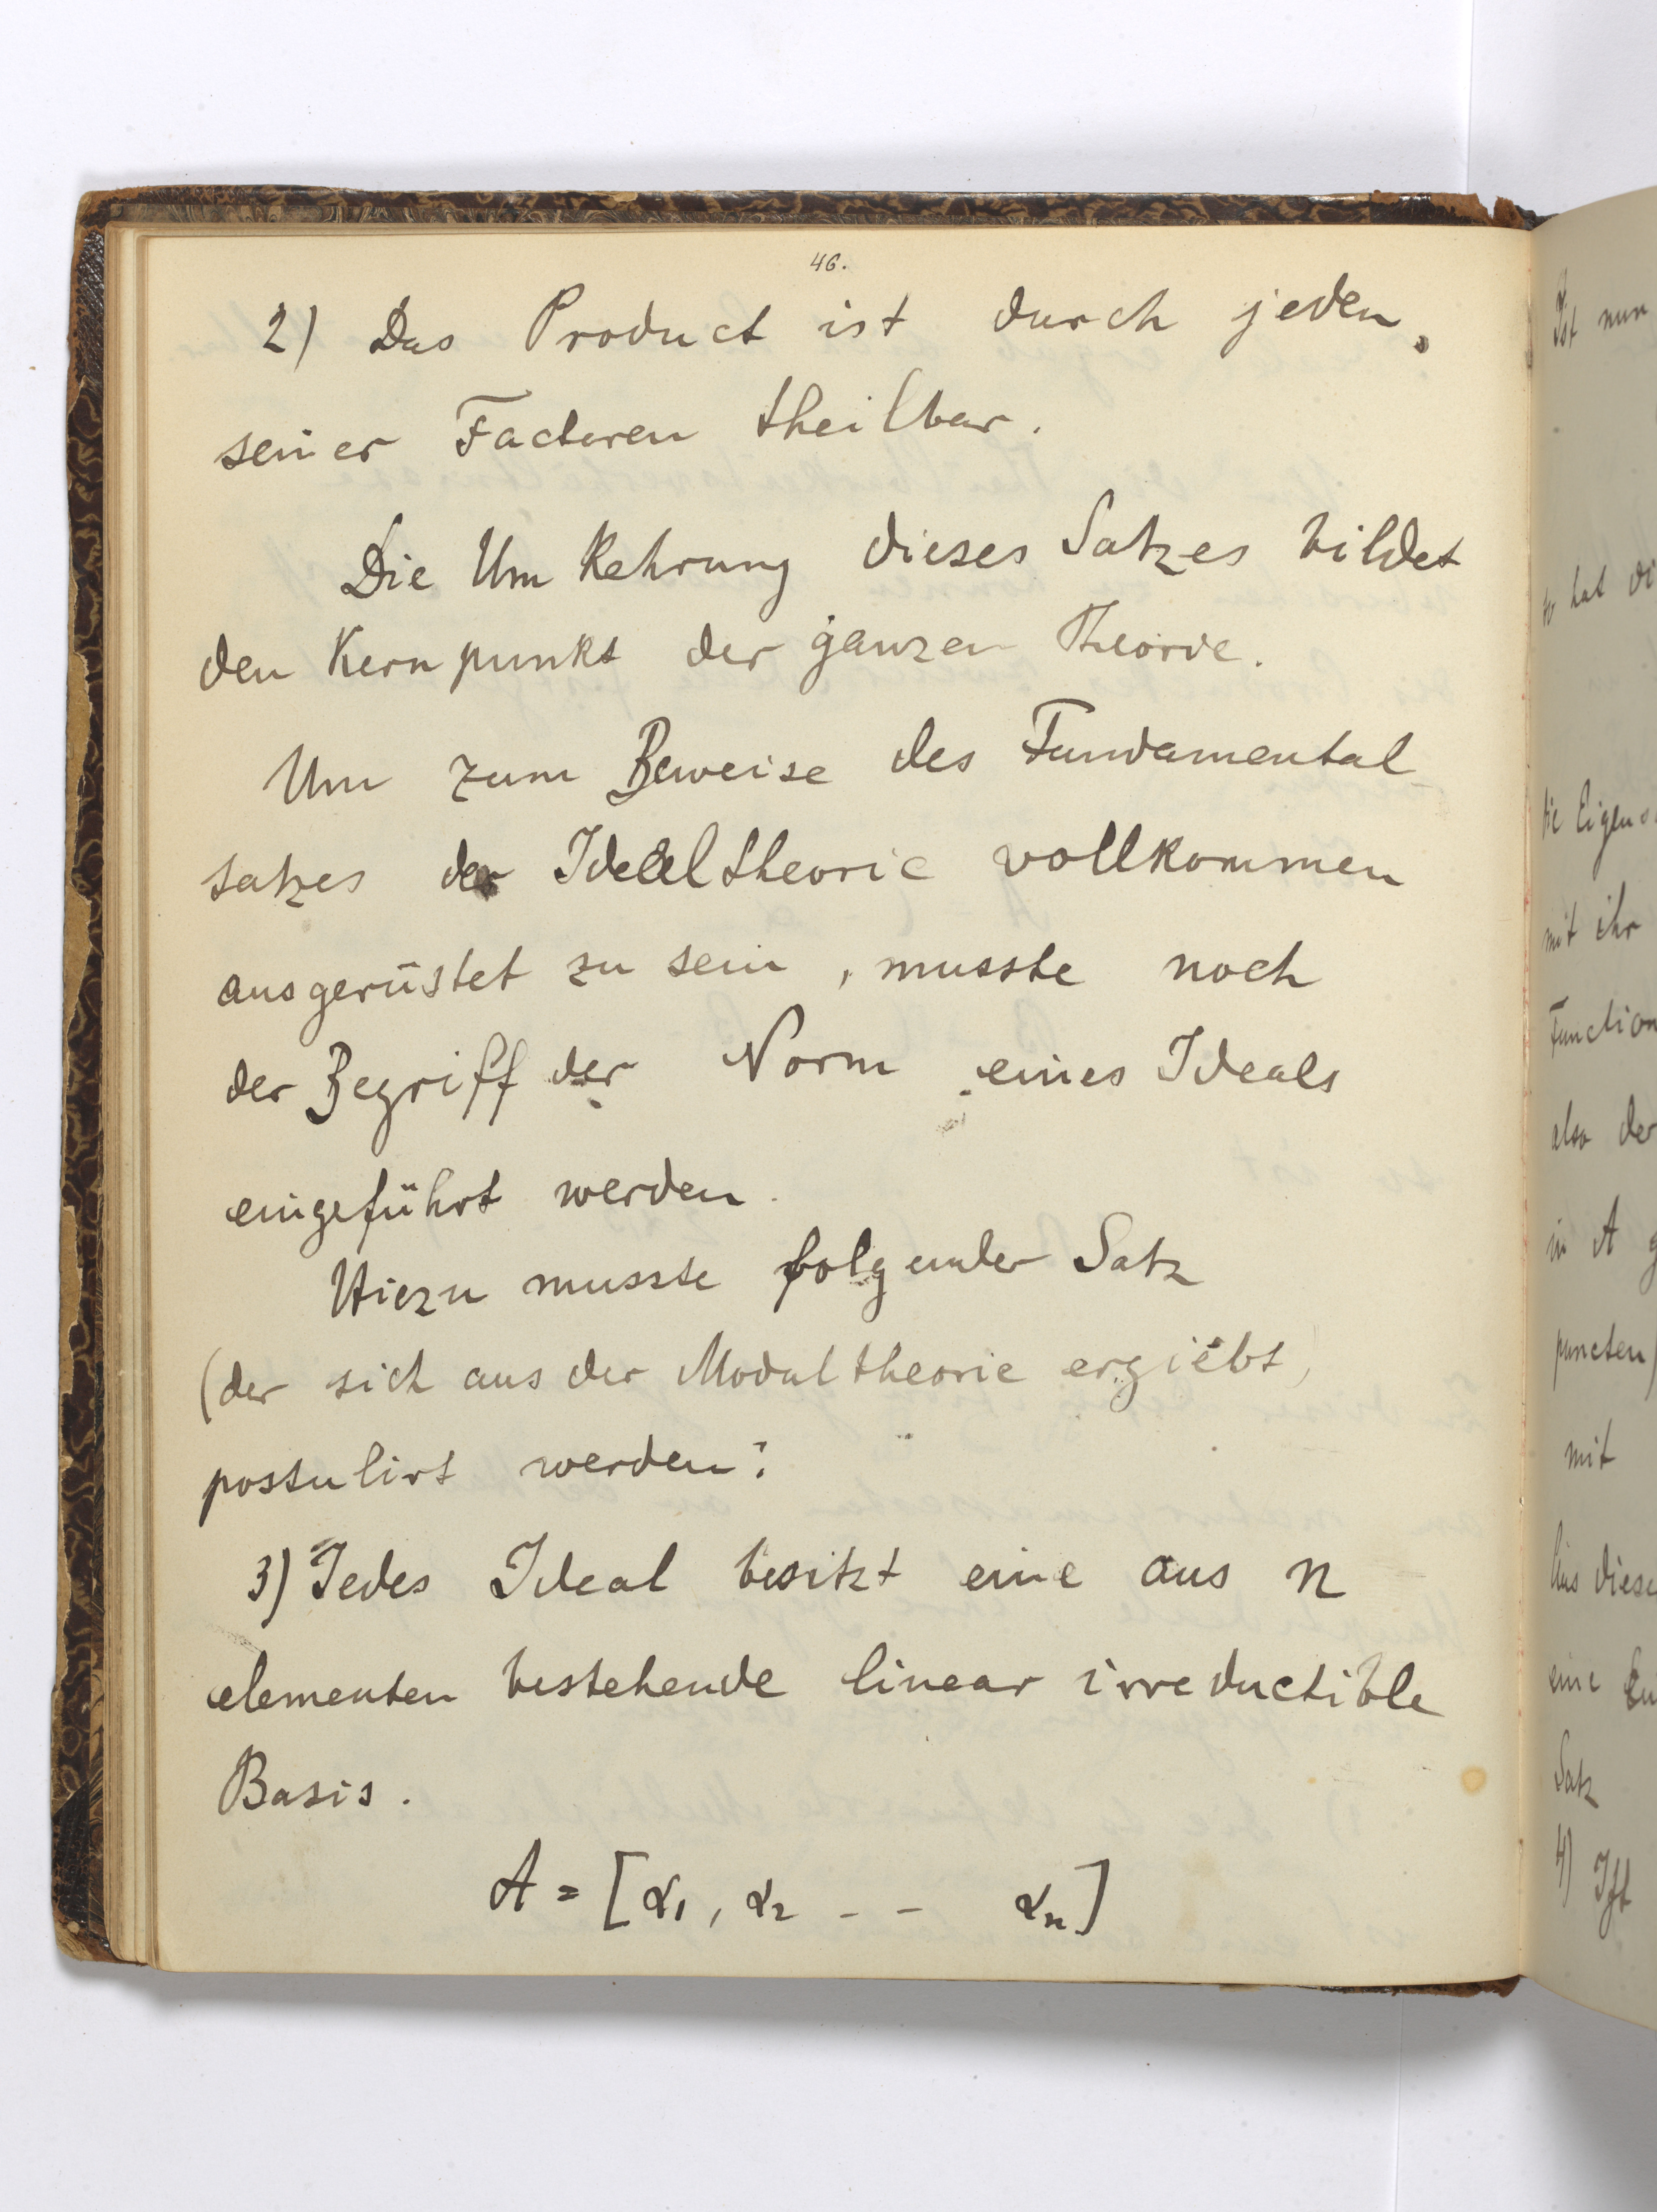 46.
2) Das Product ist durch jeden
seiner Factoren theilbar.
Die Umkehrung dieses Satzes bildet
den Kernpunkt der ganzen Theorie.
Um zum Beweise des Fundamental-
satzes der Idealtheorie vollkommen
ausgerüstet zu sein, musste noch
der Begriff der Norm eines Ideals
eingeführt werden.
Hiezu musste folgender Satz
(der sich aus der Modultheorie ergiebt)
postulirt werden:
3) Jedes Ideal besitzt eine aus n
elementen bestehende linear irreductible
Basis.
A = [α1, α2 - - αn]
Ist nun
so hat di
die Eigens
mit ihr
Function
also der
in A g
puncten)
mit
Aus diese
eine
Satz
4) Ist